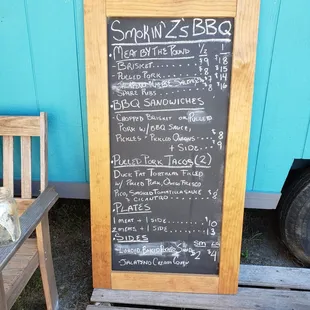 Smokin' Z's BBQ
Meat by the Pound 1/2 1
- Brisket $9 $18
- Pulled Pork $8 $15
$14
- Spare Ribs $8 $16
BBQ Sandwiches
- Chopped Brisket or Pulled
Pork w/ BBQ Sauce,
Pickles + Pickled Onions $8
+ Side $9
Pulled Pork Tacos (2)
Duck Fat Tortillas
w/ Pulled Pork, Queso Fresco
Pico, Smoked Tomatillo Salsa
+ Cilantro $8
Plates
1 meat + 1 side $10
2 meats + 1 side 13
Sides SM
$2 $4
- Jalapeno Creamed Corn